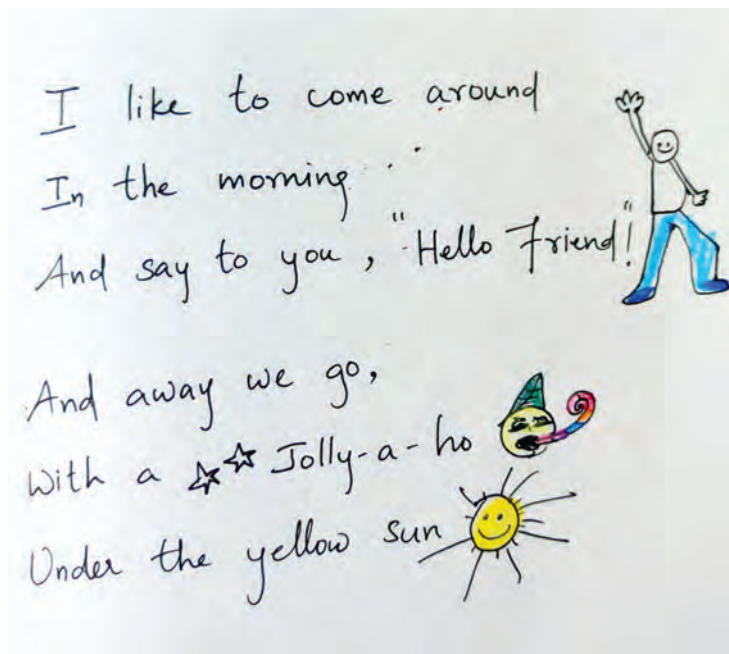 I like to come around
In the morning
And say to you, "Hello Friend!"
And away we go,
With a Jolly-a-ho
Under the yellow sun